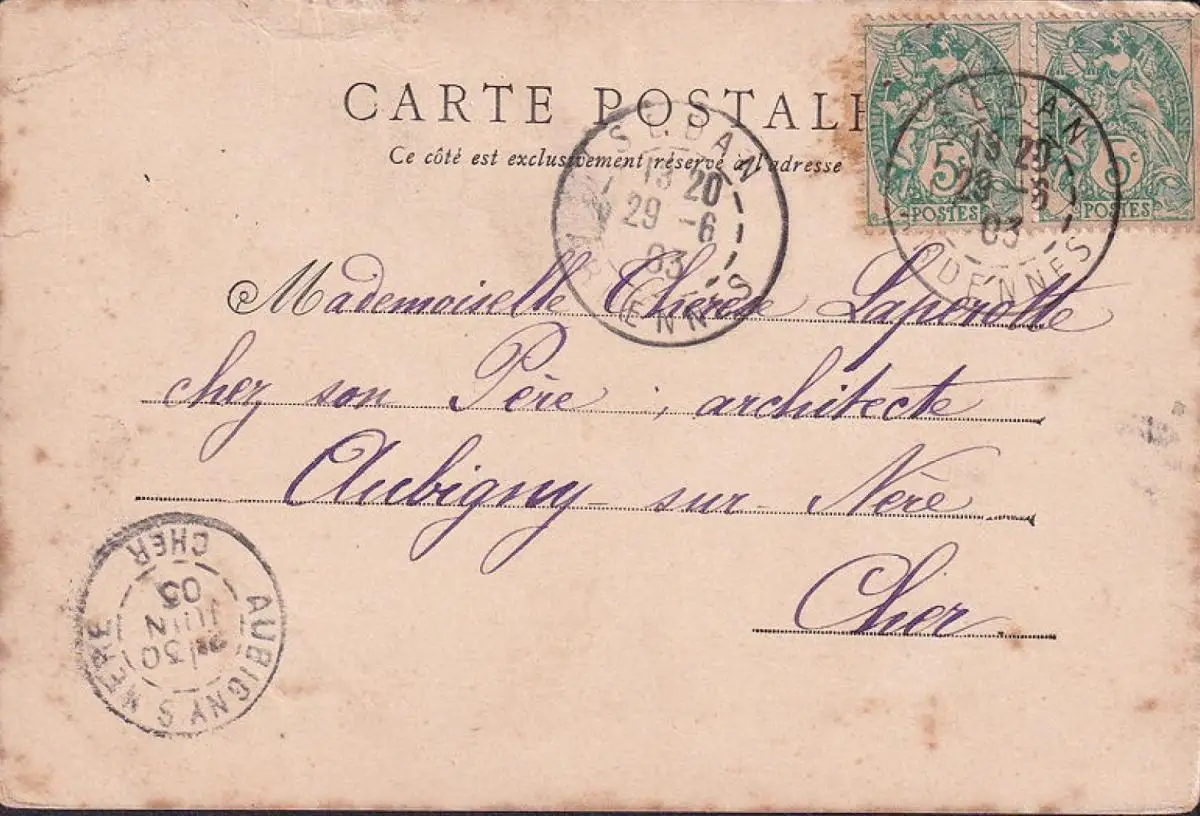 CARTE POSTALE
Ce côté est exclusivement réservé à l'adresse
5c POSTES
5c POSTES
SEDAN
13 20
29 -6
03
ARDENNES
SEDAN
13 20
29 -6
03
ARDENNES
Mademoiselle Thérèse Laperotte
chez son Père, architecte
Aubigny-sur-Nère
Cher
AUBIGNY S NERE
30
JUIN
03
CHER